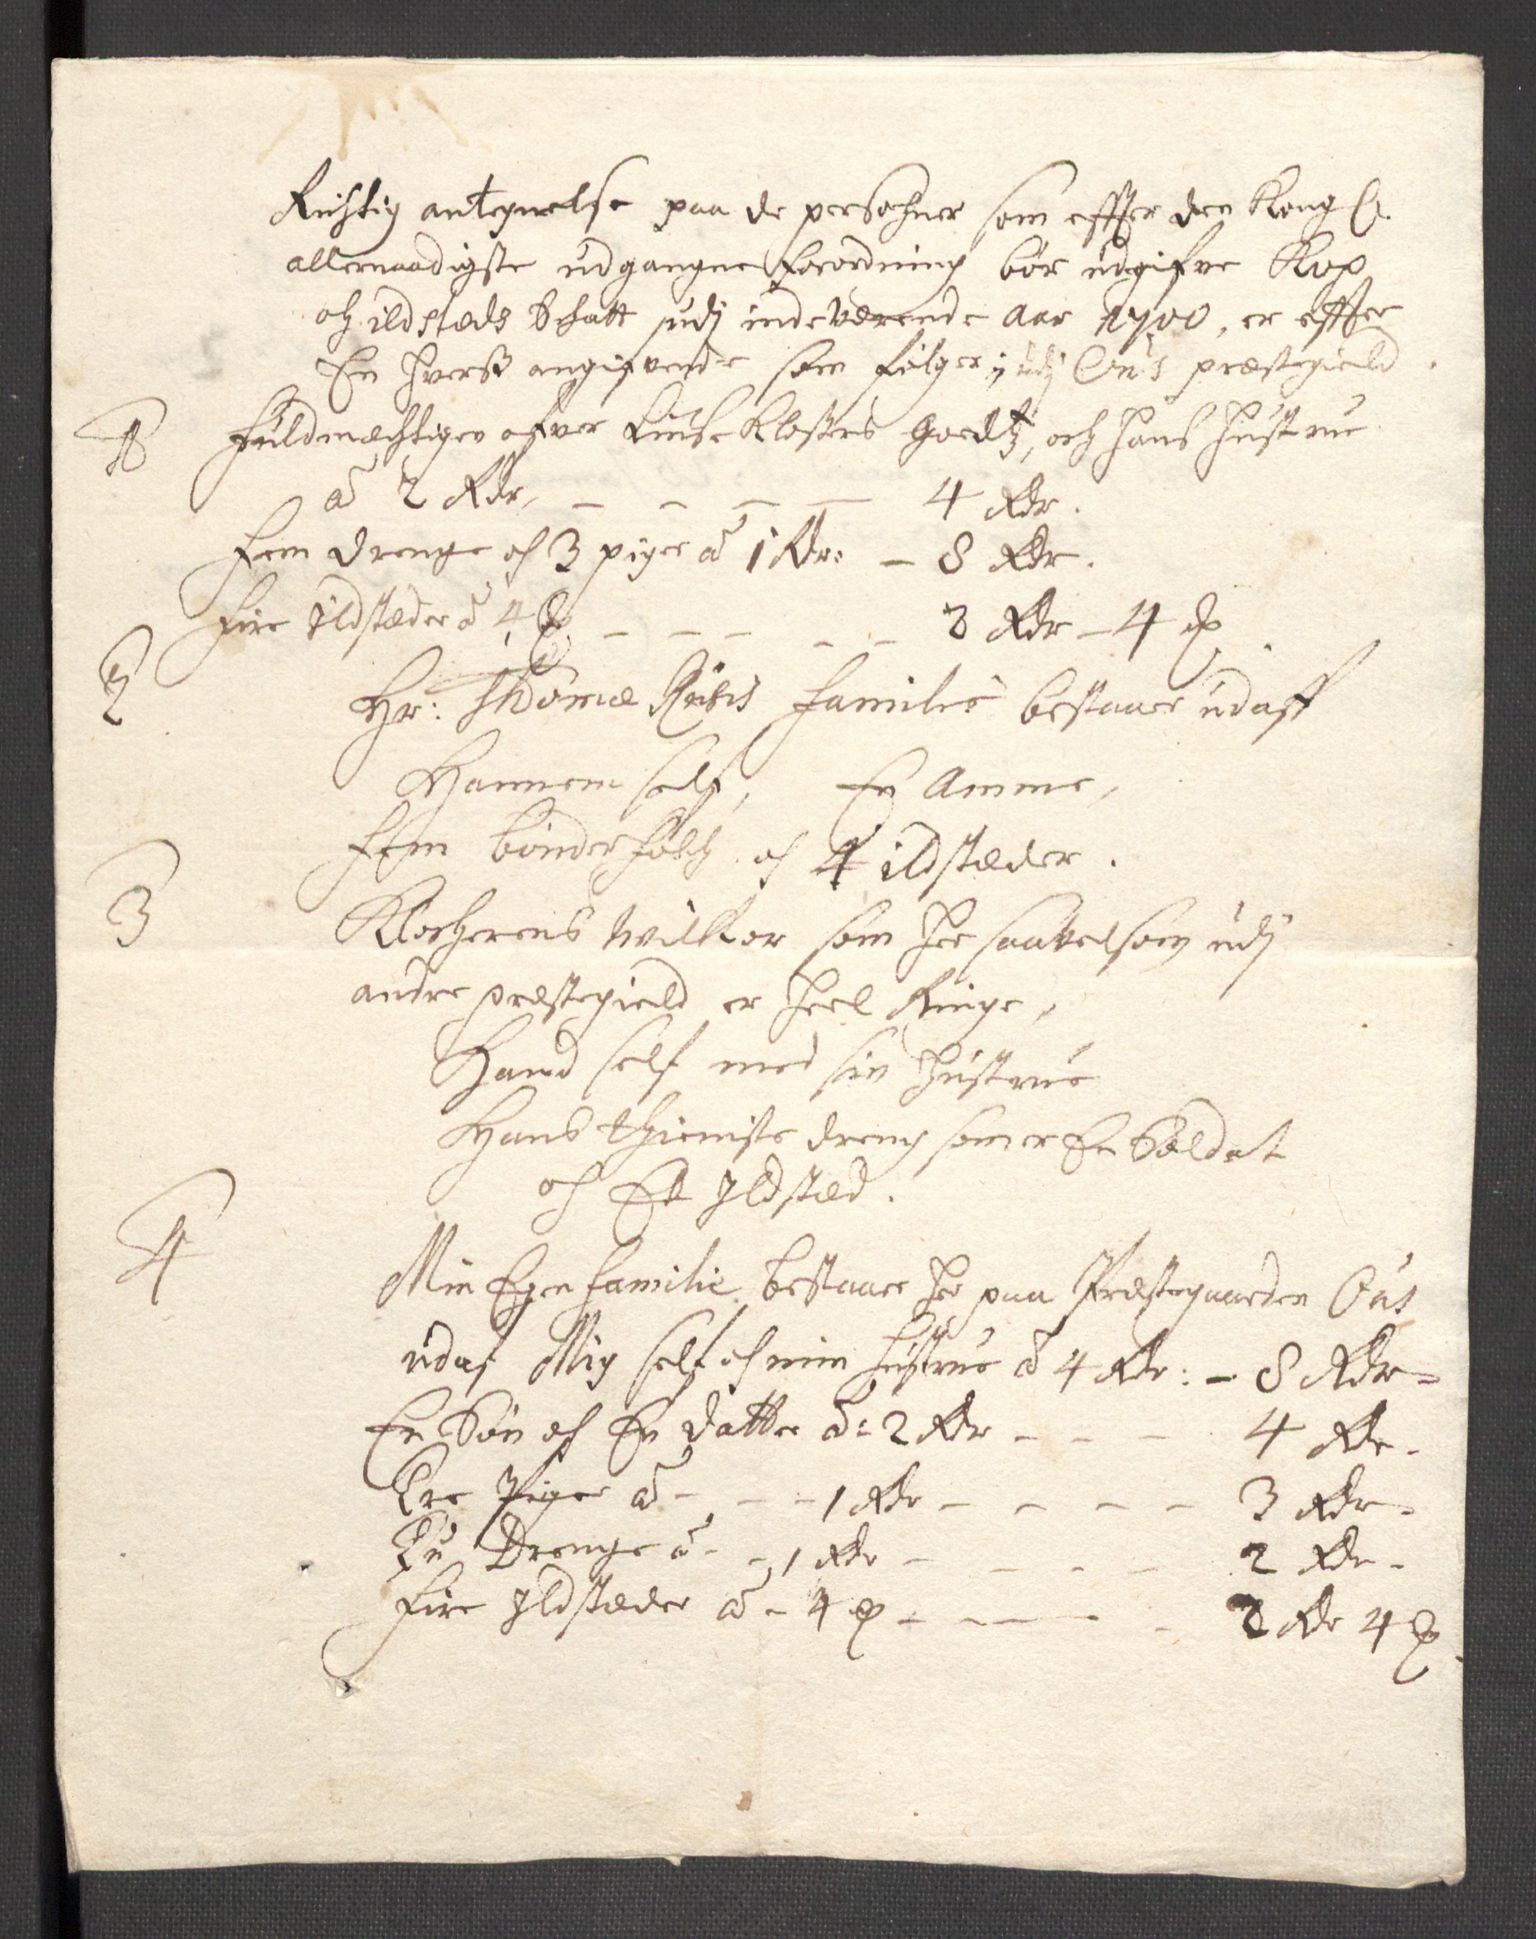 Richtig antegnelse paa de persohner som effter den Kongl:
allernaadigste udgangne forordning bør udgifve Kop
och ildstæds Schatt udj indeværende Aar 1700, er effter
En hverß angifvende som følger udj Ous præstegield.
1 Fuldmæchtigen ofver Liuse Klosters Goedtz, och hans hustrue
a 2 Rdr, – – – – 4 Rdr.
Fem drenge oc 3 piger a 1 Rdr: – 8 Rdr.
Fire Ildstæder a 4 – – – – – Rdr – 4
2 Hr: Thomæ familie bestaaer udaff
Hannem self, En Amme,
Fem bønderfolch oc 4 ildstæder.
3 Klocherens Wilkor som her saavelsom udj
andre præstegield er heel Ringe,
Hand self med sin hustrue
Hans thieniste dreng som er En Soldat
oc Et Ildstæd.
4 Min Egen familie bestaaer her paa Præstegaarden Ous
udaf Mig self oc min hustrue a 4 Rdr: – 8 Rdr –
En Søn oc En datter a: 2 Rdr – – – 4 Rdr.
Tre Piger a – – – 1 Rdr – – – – 3 Rdr –
Tu Drenge a – – 1 Rdr – – – – 2 Rdr –
Fire Ildstæder a – 4 – – – – 2 Rdr 4